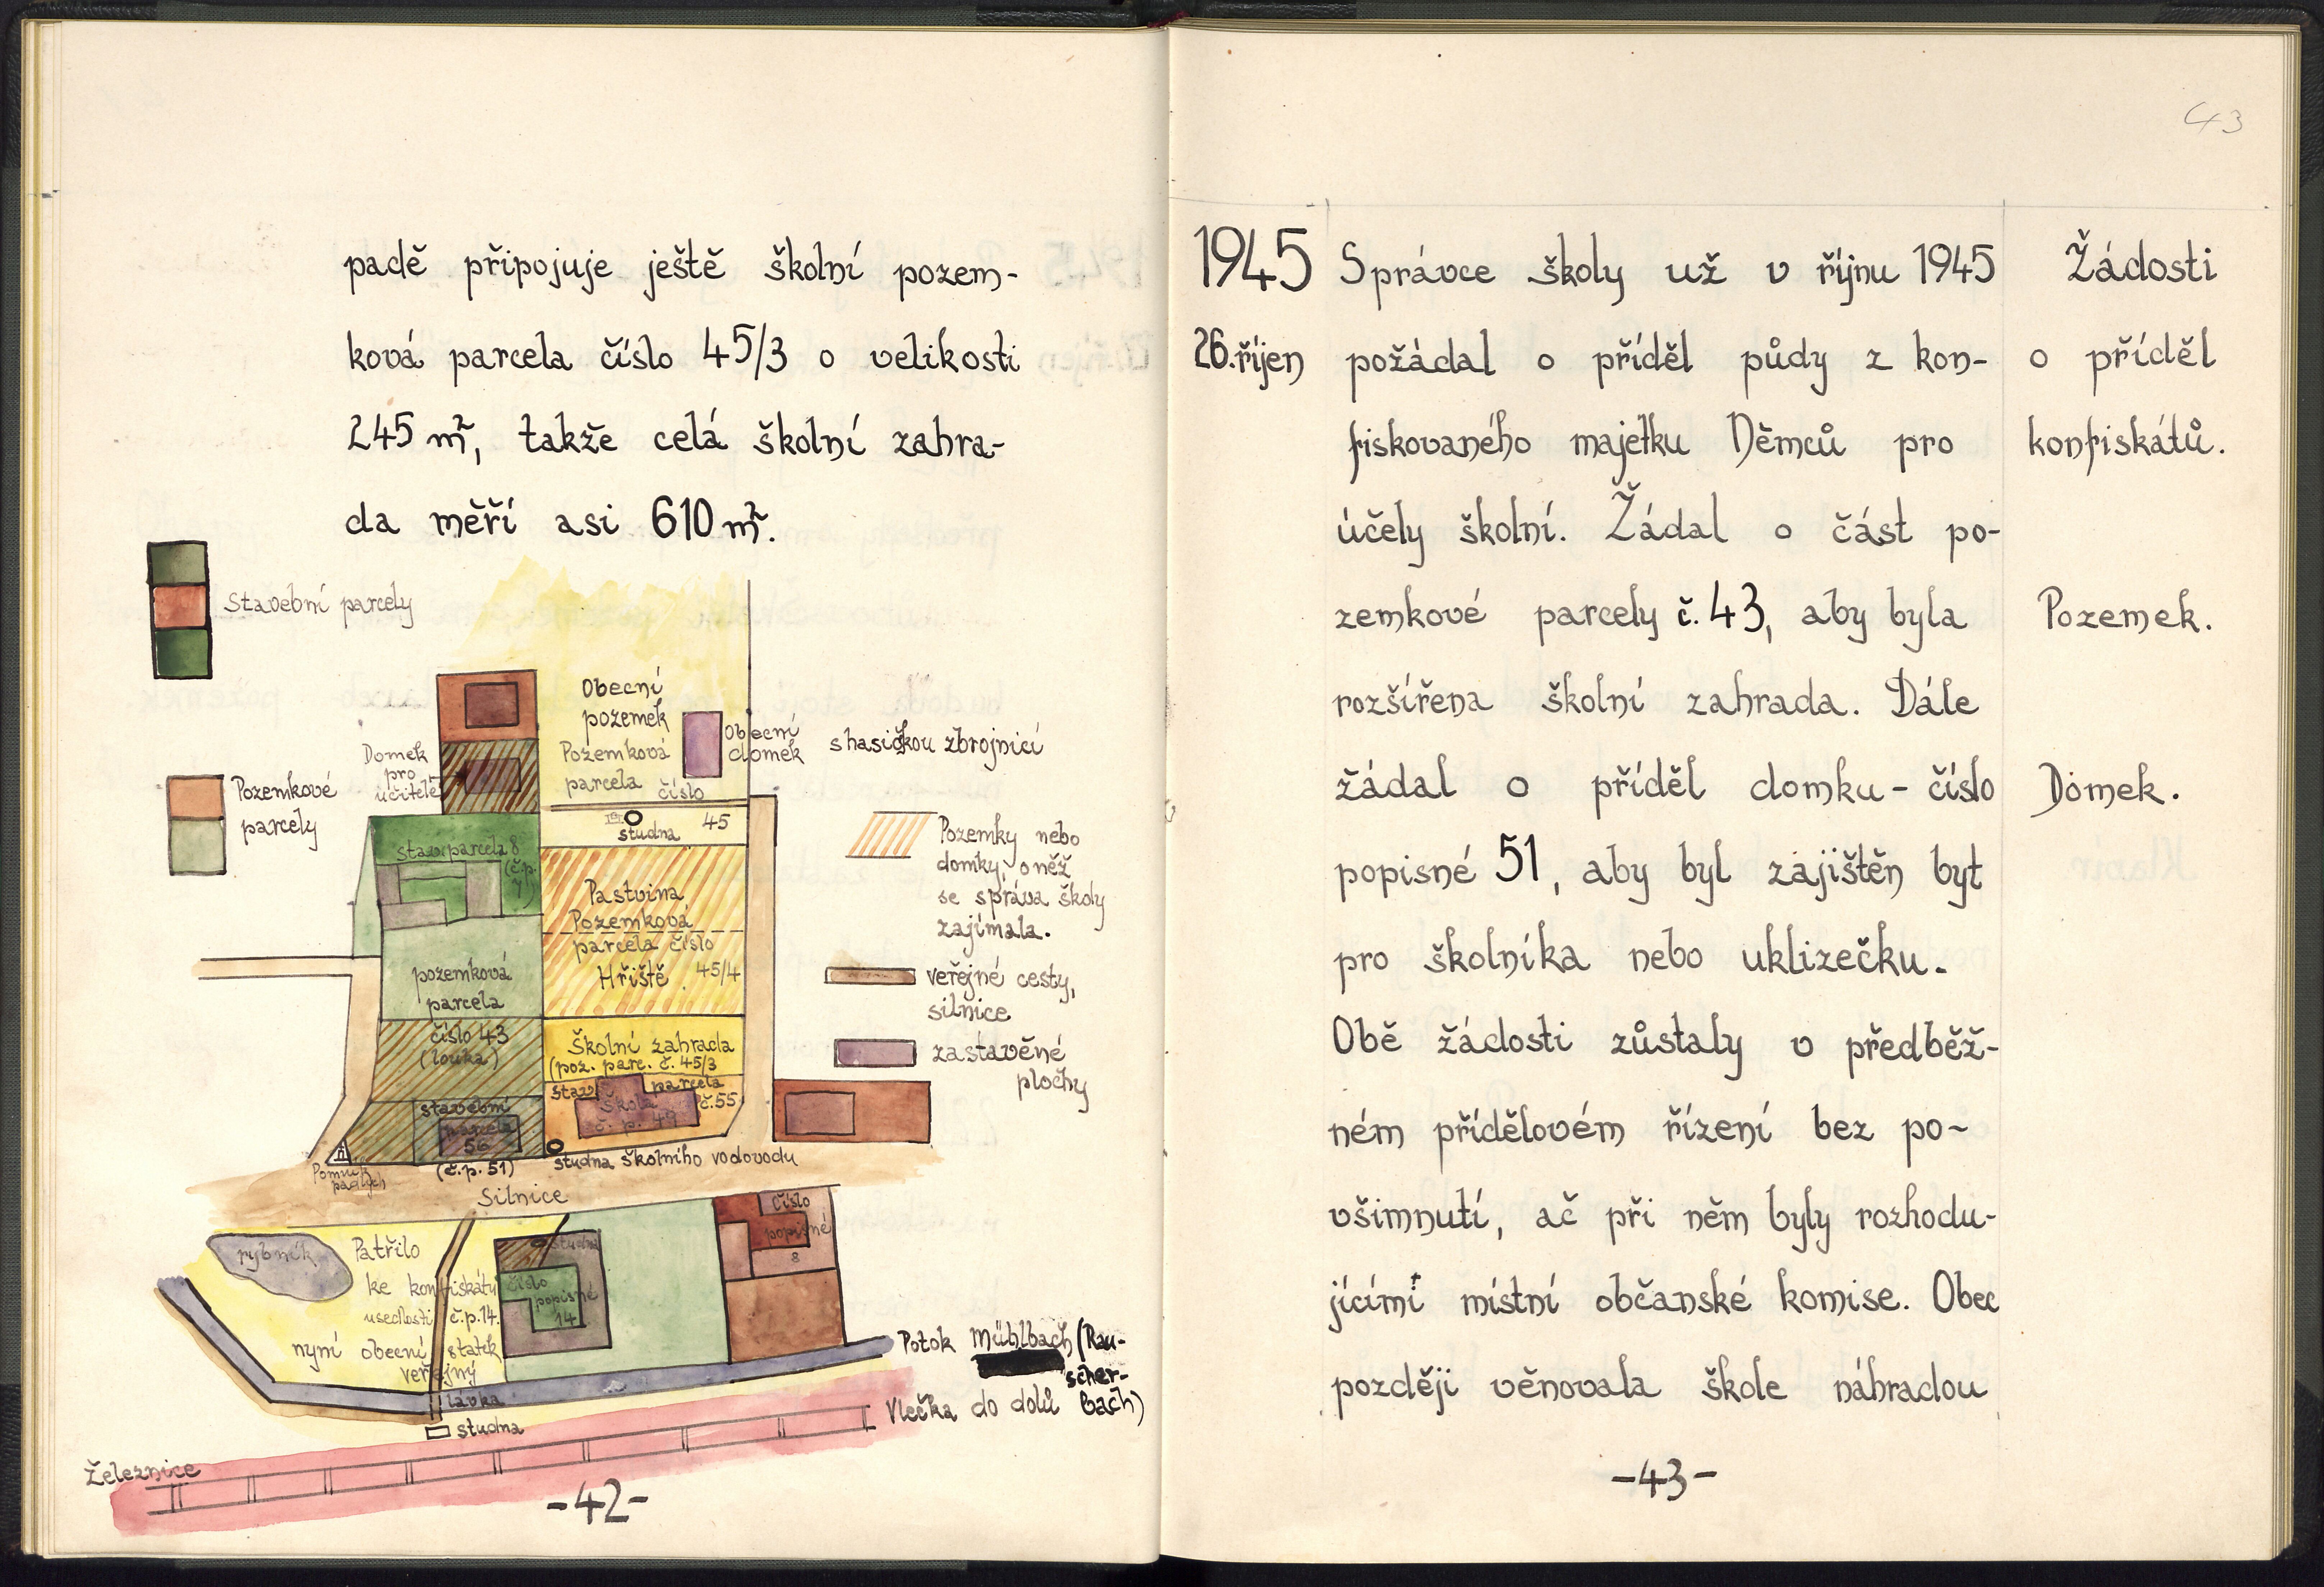 padě připojuje ještě školní pozem-
ková parcela číslo 45/3 o velikosti
245 m², takže celá školní zahra-
da měří asi 610 m².
Stavební parcely
Pozemkové
parcely
Obecní
pozemek
Pozemková
parcela číslo
45
Obecní
domek s hasičkou zbrojnicí
Domek
pro
učitele
studna
stav. parcela 8
(č.p.
7)
Pastvina
Pozemková
parcela číslo
Hřiště 45/4
pozemková
parcela
číslo 43
(louka)
Školní zahrada
(poz. parc. č. 45/3
stav. parcela
č. 55
Škola
č. p. 49
stavební
parcela
56
(č.p. 51)
Pomník
padlých
studna školního vodovodu
Silnice
Pozemky nebo
domky, o něž
se správa školy
zajímala.
veřejné cesty,
silnice
zastavěné
plochy
rybník
Patřilo
ke konfiskátu
usedlosti č.p. 14.
nyní obecní statek
veřejný
studna
číslo
popisné
14
číslo
popisné
8
lávka
studna
Potok Mühlbach (Rau-
scher-
bach)
Vlečka do dolů
Železnice
-42-
43
1945
26. říjen
Správce školy už v říjnu 1945
požádal o příděl půdy z kon-
fiskovaného majetku Němců pro
účely školní. Žádal o část po-
zemkové parcely č. 43, aby byla
rozšířena školní zahrada. Dále
žádal o příděl domku - číslo
popisné 51, aby byl zajištěn byt
pro školníka nebo uklizečku.
Obě žádosti zůstaly v předběž-
ném přídělovém řízení bez po-
všimnutí, ač při něm byly rozhodu-
jícími místní občanské komise. Obec
později věnovala škole náhradou
Žádosti
o příděl
konfiskátů.
Pozemek.
Domek.
-43-